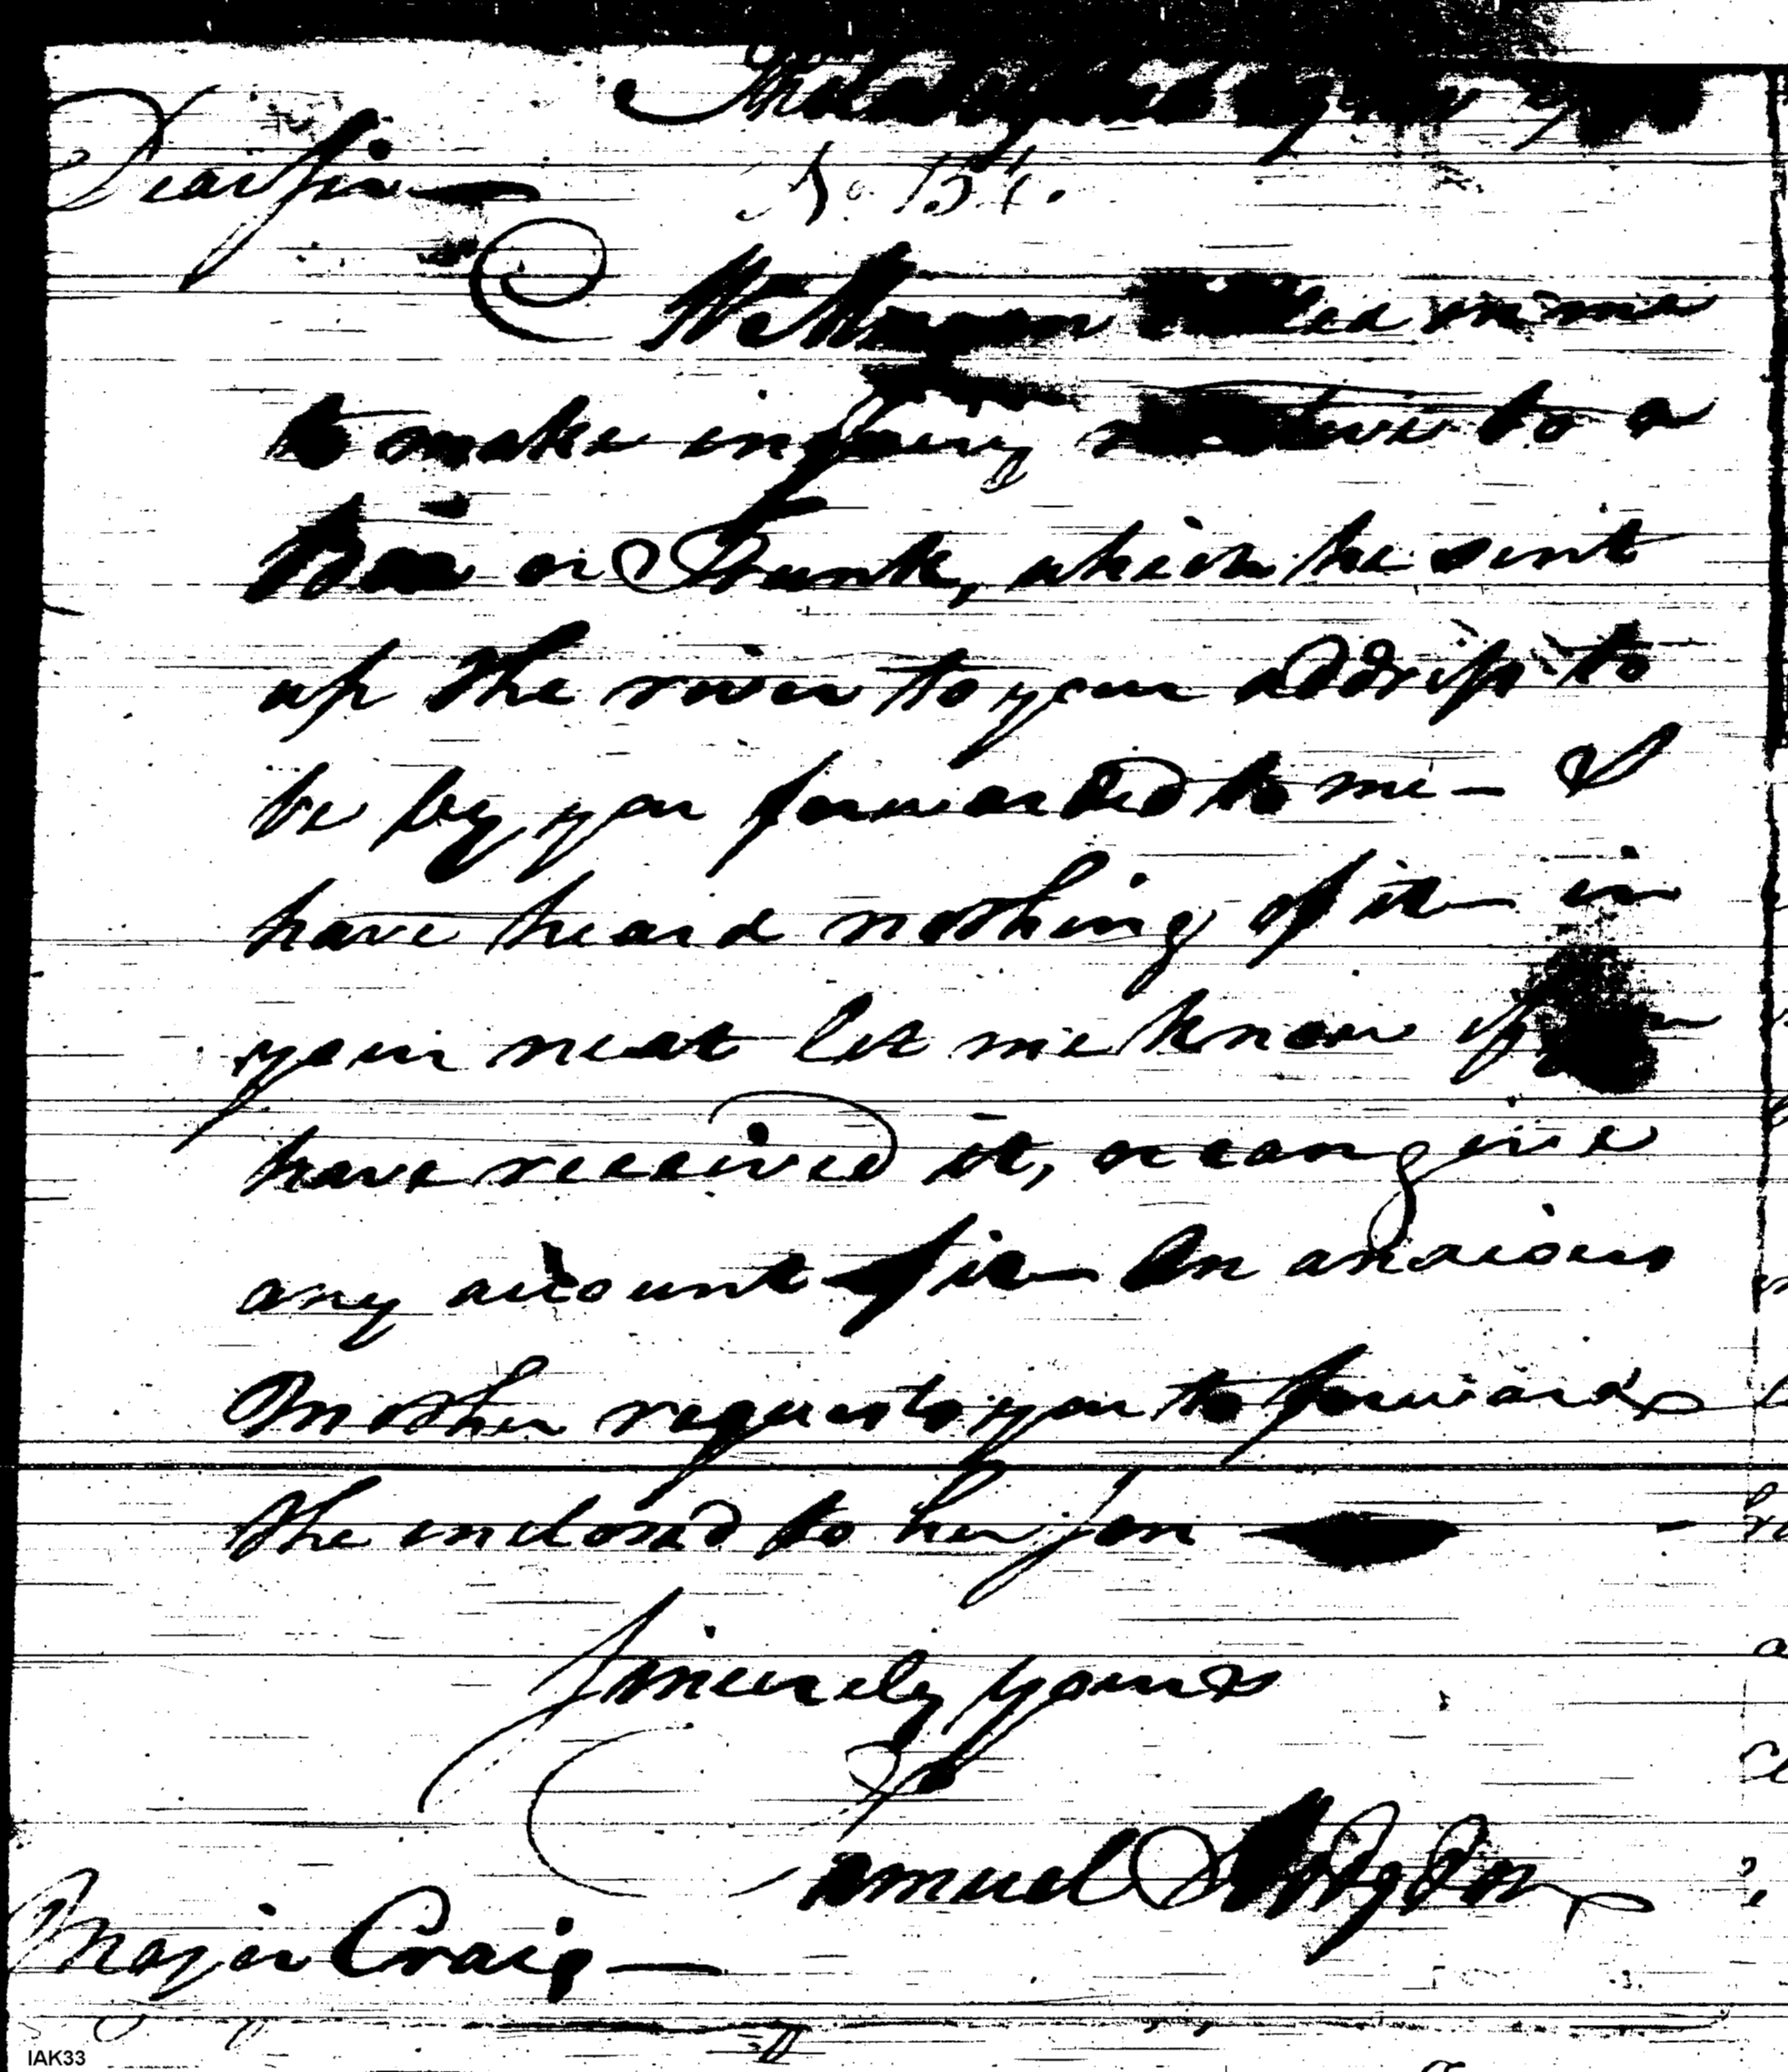 Philadelphia
Dear Sir
No. 151.
Wm Morgan called on me
to make inquiry relative to a
Box or Trunk, which he sent
up the river to your address to
be by you forwarded to me — I
have heard nothing of it — in
your next let me know if you
have received it, or can give
any account of it — An anxious
Mother requests you to forward
the enclosed to her son —
Sincerely yours
Samuel Hodgdon
Major Craig —
IAK33